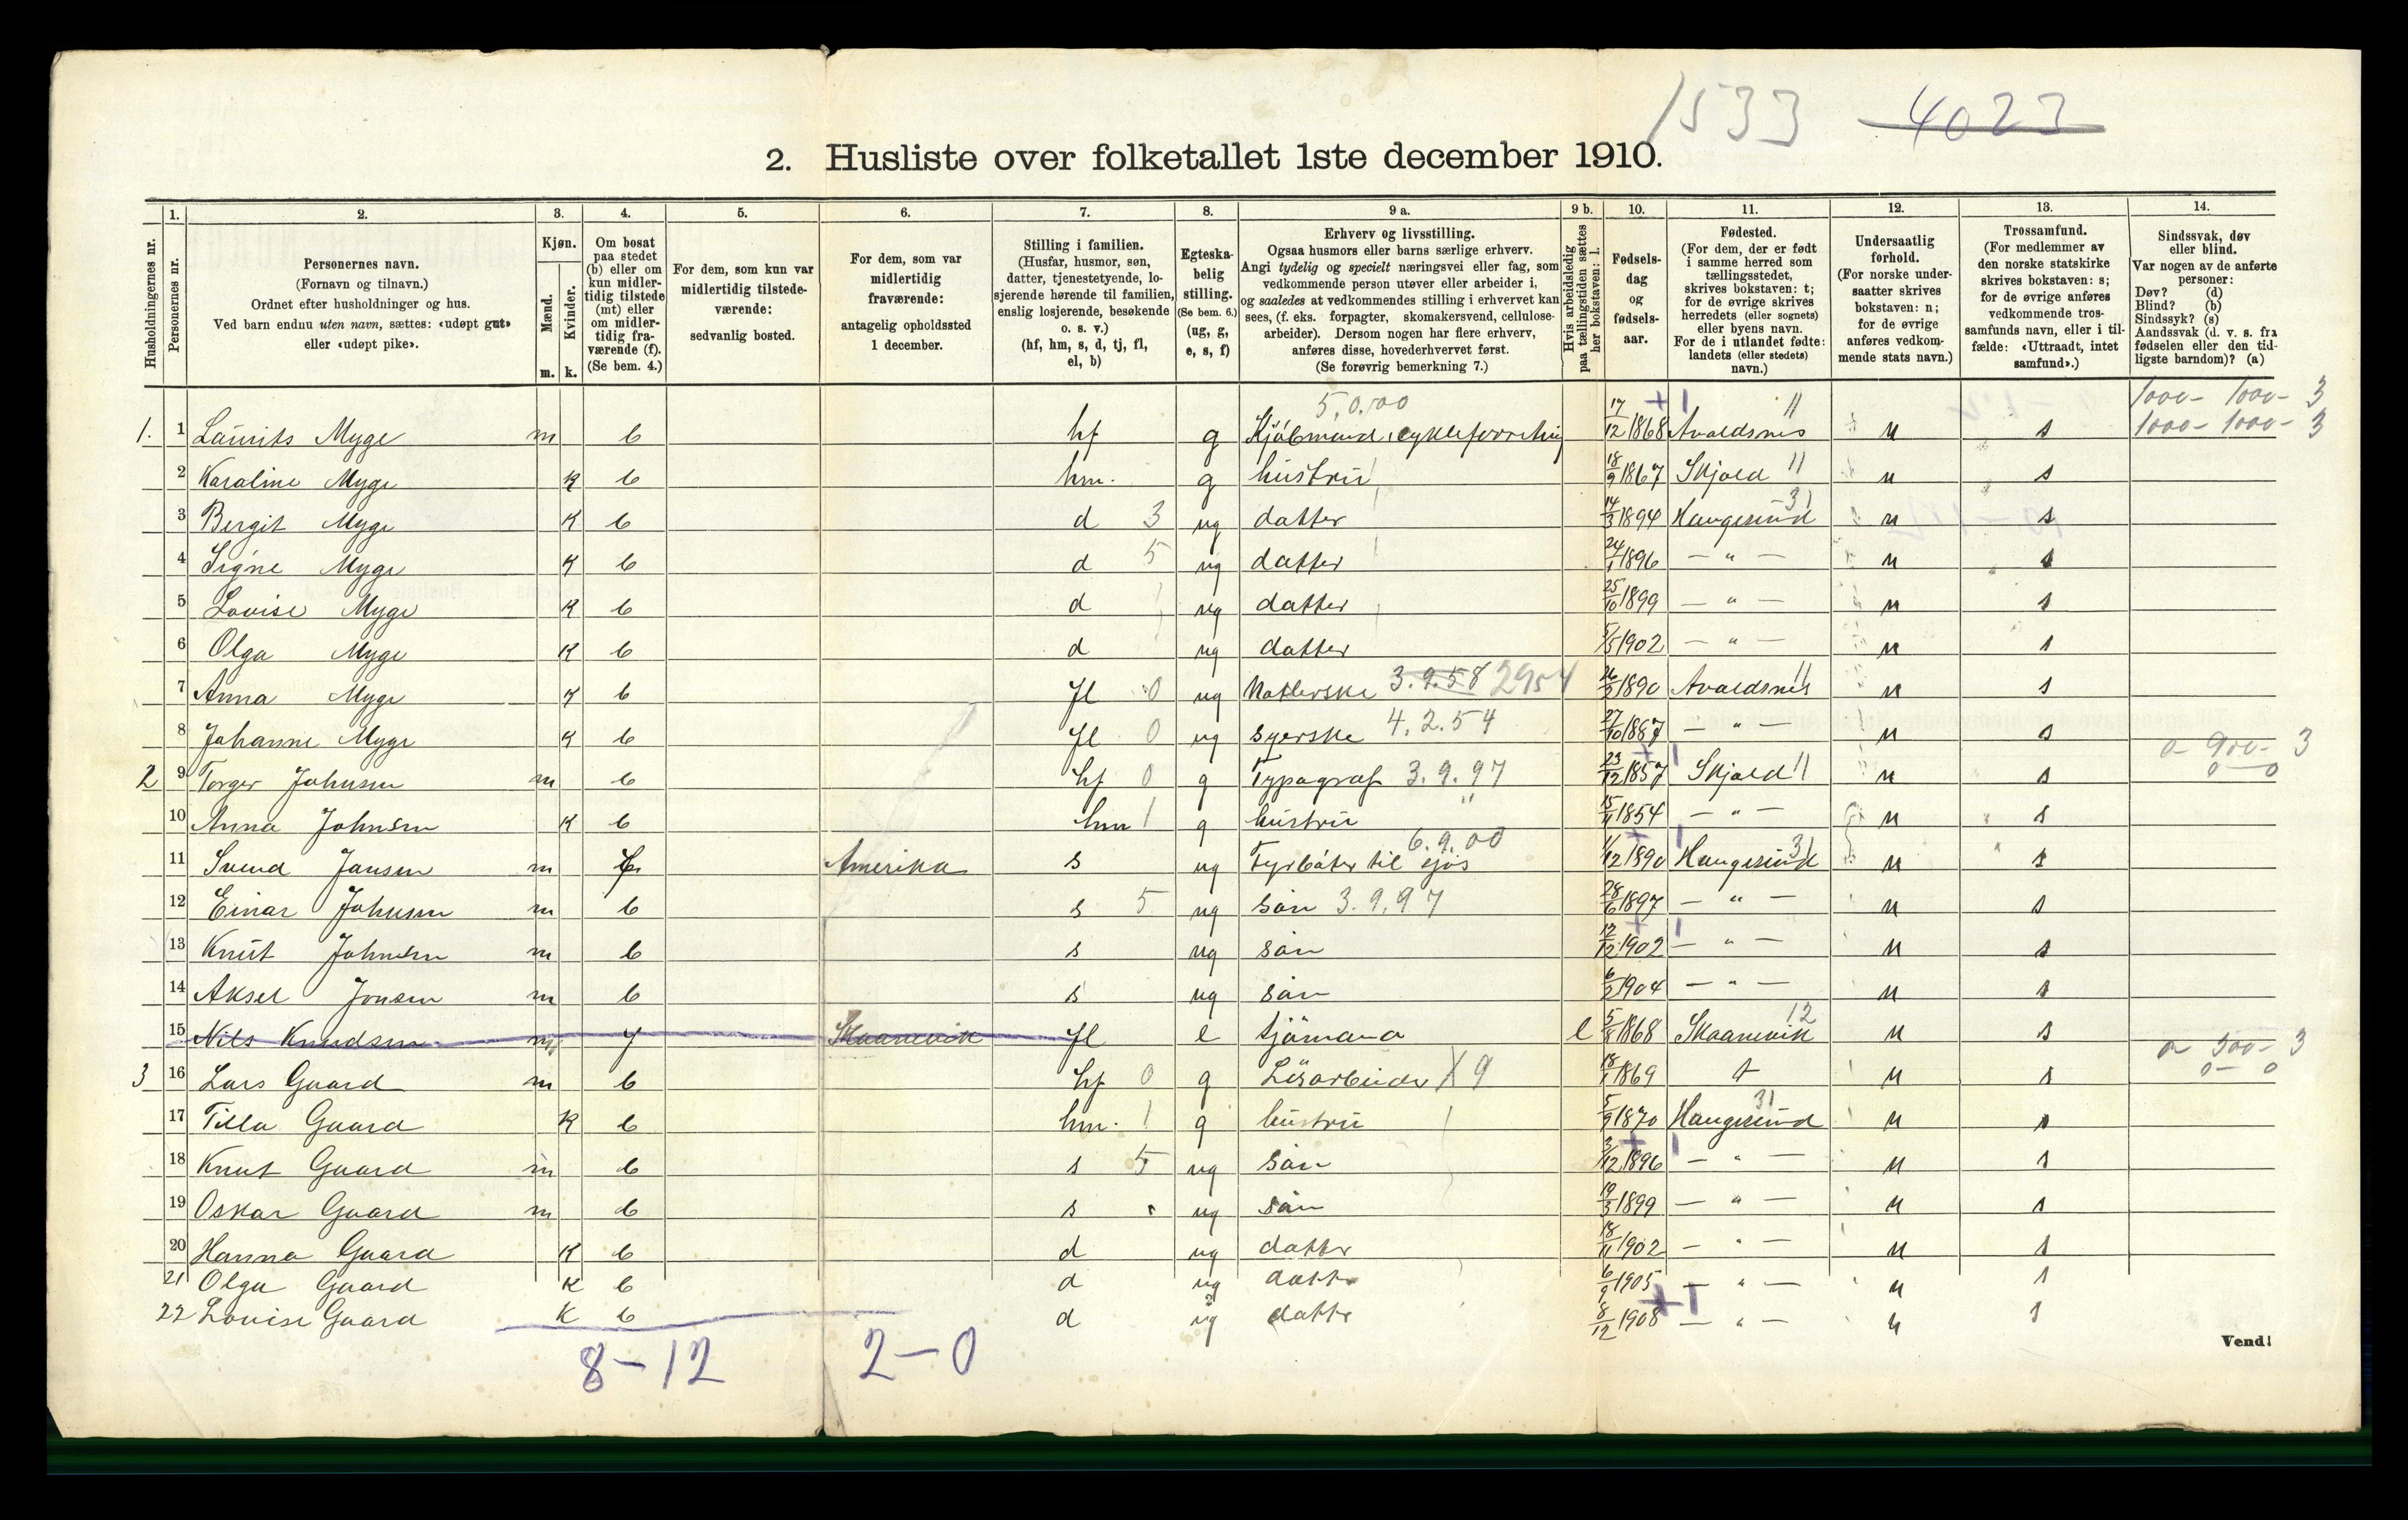 1533 4023
2. Husliste over folketallet 1ste december 1910.
1. 2. 3. 4. 5. 6. 7. 8. 9 a. 9 b. 10. 11. 12. 13. 14.
Husholdningernes nr.
Personernes nr.
Personernes navn.
(Fornavn og tilnavn.)
Ordnet efter husholdninger og hus.
Ved barn endnu uten navn, sættes: «udøpt gut»
eller «udøpt pike».
Kjøn.
Mænd.
Kvinder.
m. k.
Om bosat
paa stedet
(b) eller om
kun midler-
tidig tilstede
(mt) eller
om midler-
tidig fra-
værende (f).
(Se bem. 4.)
For dem, som kun var
midlertidig tilstede-
værende:
sedvanlig bosted.
For dem, som var
midlertidig
fraværende:
antagelig opholdssted
1 december.
Stilling i familien.
(Husfar, husmor, søn,
datter, tjenestetyende, lo-
sjerende hørende til familien,
enslig losjerende, besøkende
o. s. v.)
(hf, hm, s, d, tj, fl,
el, b)
Egteska-
belig
stilling.
(Se bem. 6.)
(ug, g,
e, s, f)
Erhverv og livsstilling.
Ogsaa husmors eller barns særlige erhverv.
Angi tydelig og specielt næringsvei eller fag, som
vedkommende person utøver eller arbeider i,
og saaledes at vedkommendes stilling i erhvervet kan
sees, (f. eks. forpagter, skomakersvend, cellulose-
arbeider). Dersom nogen har flere erhverv,
anføres disse, hovederhvervet først.
(Se forøvrig bemerkning 7.)
Hvis arbeidsledig
paa tællingstiden sættes
her bokstaven: l.
Fødsels-
dag
og
fødsels-
aar.
Fødested.
(For dem, der er født
i samme herred som
tællingsstedet,
skrives bokstaven: t;
for de øvrige skrives
herredets (eller sognets)
eller byens navn.
For de i utlandet fødte:
landets (eller stedets)
navn.)
Undersaatlig
forhold.
(For norske under-
saatter skrives
bokstaven: n;
for de øvrige
anføres vedkom-
mende stats navn.)
Trossamfund.
(For medlemmer av
den norske statskirke
skrives bokstaven: s;
for de øvrige anføres
vedkommende tros-
samfunds navn, eller i til-
fælde: «Uttraadt, intet
samfund».)
Sindssvak, døv
eller blind.
Var nogen av de anførte
personer:
Døv? (d)
Blind? (b)
Sindssyk? (s)
Aandssvak (d. v. s. fra
fødselen eller den tid-
ligste barndom)? (a)
5.0.00 11 1000- 1000- 3
1. 1 Laurits Myge m b hf g 17/12 1868 Avaldsnes n s 1000- 1000- 3
2 Karaline Myge k b hm. g hustru 18/9 1867 Skjold 11 n s
3 Bergit Myge k b d 3 ug datter 14/3 1894 Haugesund 31 n s
4 Signe Myge k b d 5 ug datter 24/1 1896 — " — n s
5 Lovise Myge k b d ug datter 25/10 1899 — " — n s
6 Olga Myge k b d ug datter 5/5 1902 — " — n s
7 Anna Myge k b fl 0 ug 3.9.58 2954 26/2 1890 Avaldsnes 11 n s
8 Johanne Myge k b fl 0 ug syerske 4.2.54 27/10 1887 — " — n s
0 900- 3
2 9 Torger Johnsen m b hf 0 g Typograf 3.9.97 23/12 1857 Skjold 11 n s 0 0
10 Anna Johnsen k b hm 1 g hustru " 15/11 1854 — " — n s
6.9.00
11 Svend Jansen m f Amerika s ug Fyrbøter til sjøs 1/12 1890 Haugesund 31 n s
12 Einar Johnsen m b s 5 ug søn 3.9.97 28/6 1897 — " — n s
13 Knut Johnsen m b s ug søn 12/12 1902 — " — n s
14 Aksel Jonsen m b s ug søn 6/2 1904 — " — n s
15 Nils Knudsen m f Skaanevik fl e sjömand l 5/8 1868 Skaanevik 12 n s
0 500- 3
3 16 Lars Gaard m b hf 0 g Lösarbeider X9 18/1 1869 t n s 0- 0
17 Tilla Gaard k b hm. 1 g hustru 5/9 1870 Haugesund 31 n s
18 Knut Gaard m b s 5 ug søn 3/12 1896 — " — n s
19 Oskar Gaard m b s ug søn 19/3 1899 — " — n s
20 Hanna Gaard k b d ug datter 18/11 1902 — " — n s
21 Olga Gaard k b d ug datter 6/9 1905 — " — n s
22 Lovise Gaard k b d ug datter 8/12 1908 — " — n s
8-12 2-0
Vend!